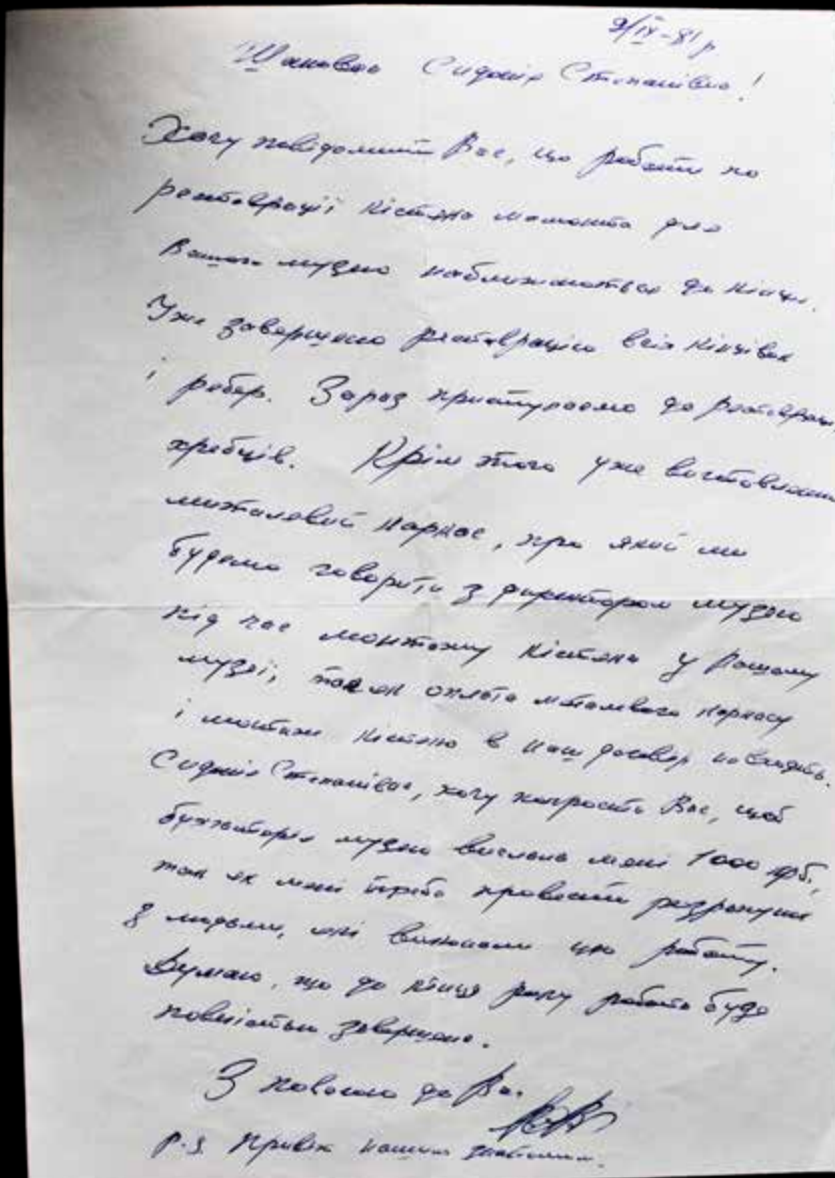 9/IX-81 р
Шановна Сидонія Степанівна!
Хочу повідомити Вас, що роботи по
реставрації кістяка мамонта для
Вашого музею наближаються до кінця.
Уже завершено реставрацію всіх кінцівок
і ребер. Зараз приступаємо до реставрац
хребців. Крім того уже виготовлени
металевий каркас, про який ми
будемо говорити з директором музею
під час монтажу кістяка у Вашому
музеї, так як оплата металевого каркасу
і монтаж кістяка в наш договір не входить.
Сидонія Степанівна, хочу попросити Вас, щоб
бухгалтерія музею вислала мені 1000 крб,
так як мені треба провести розрахунки
з людьми, які виконали цю роботу.
Думаю, що до кінця року робота буде
повністю завершена.
З повагою до Вас
P.S Привіт нашим знайомим.